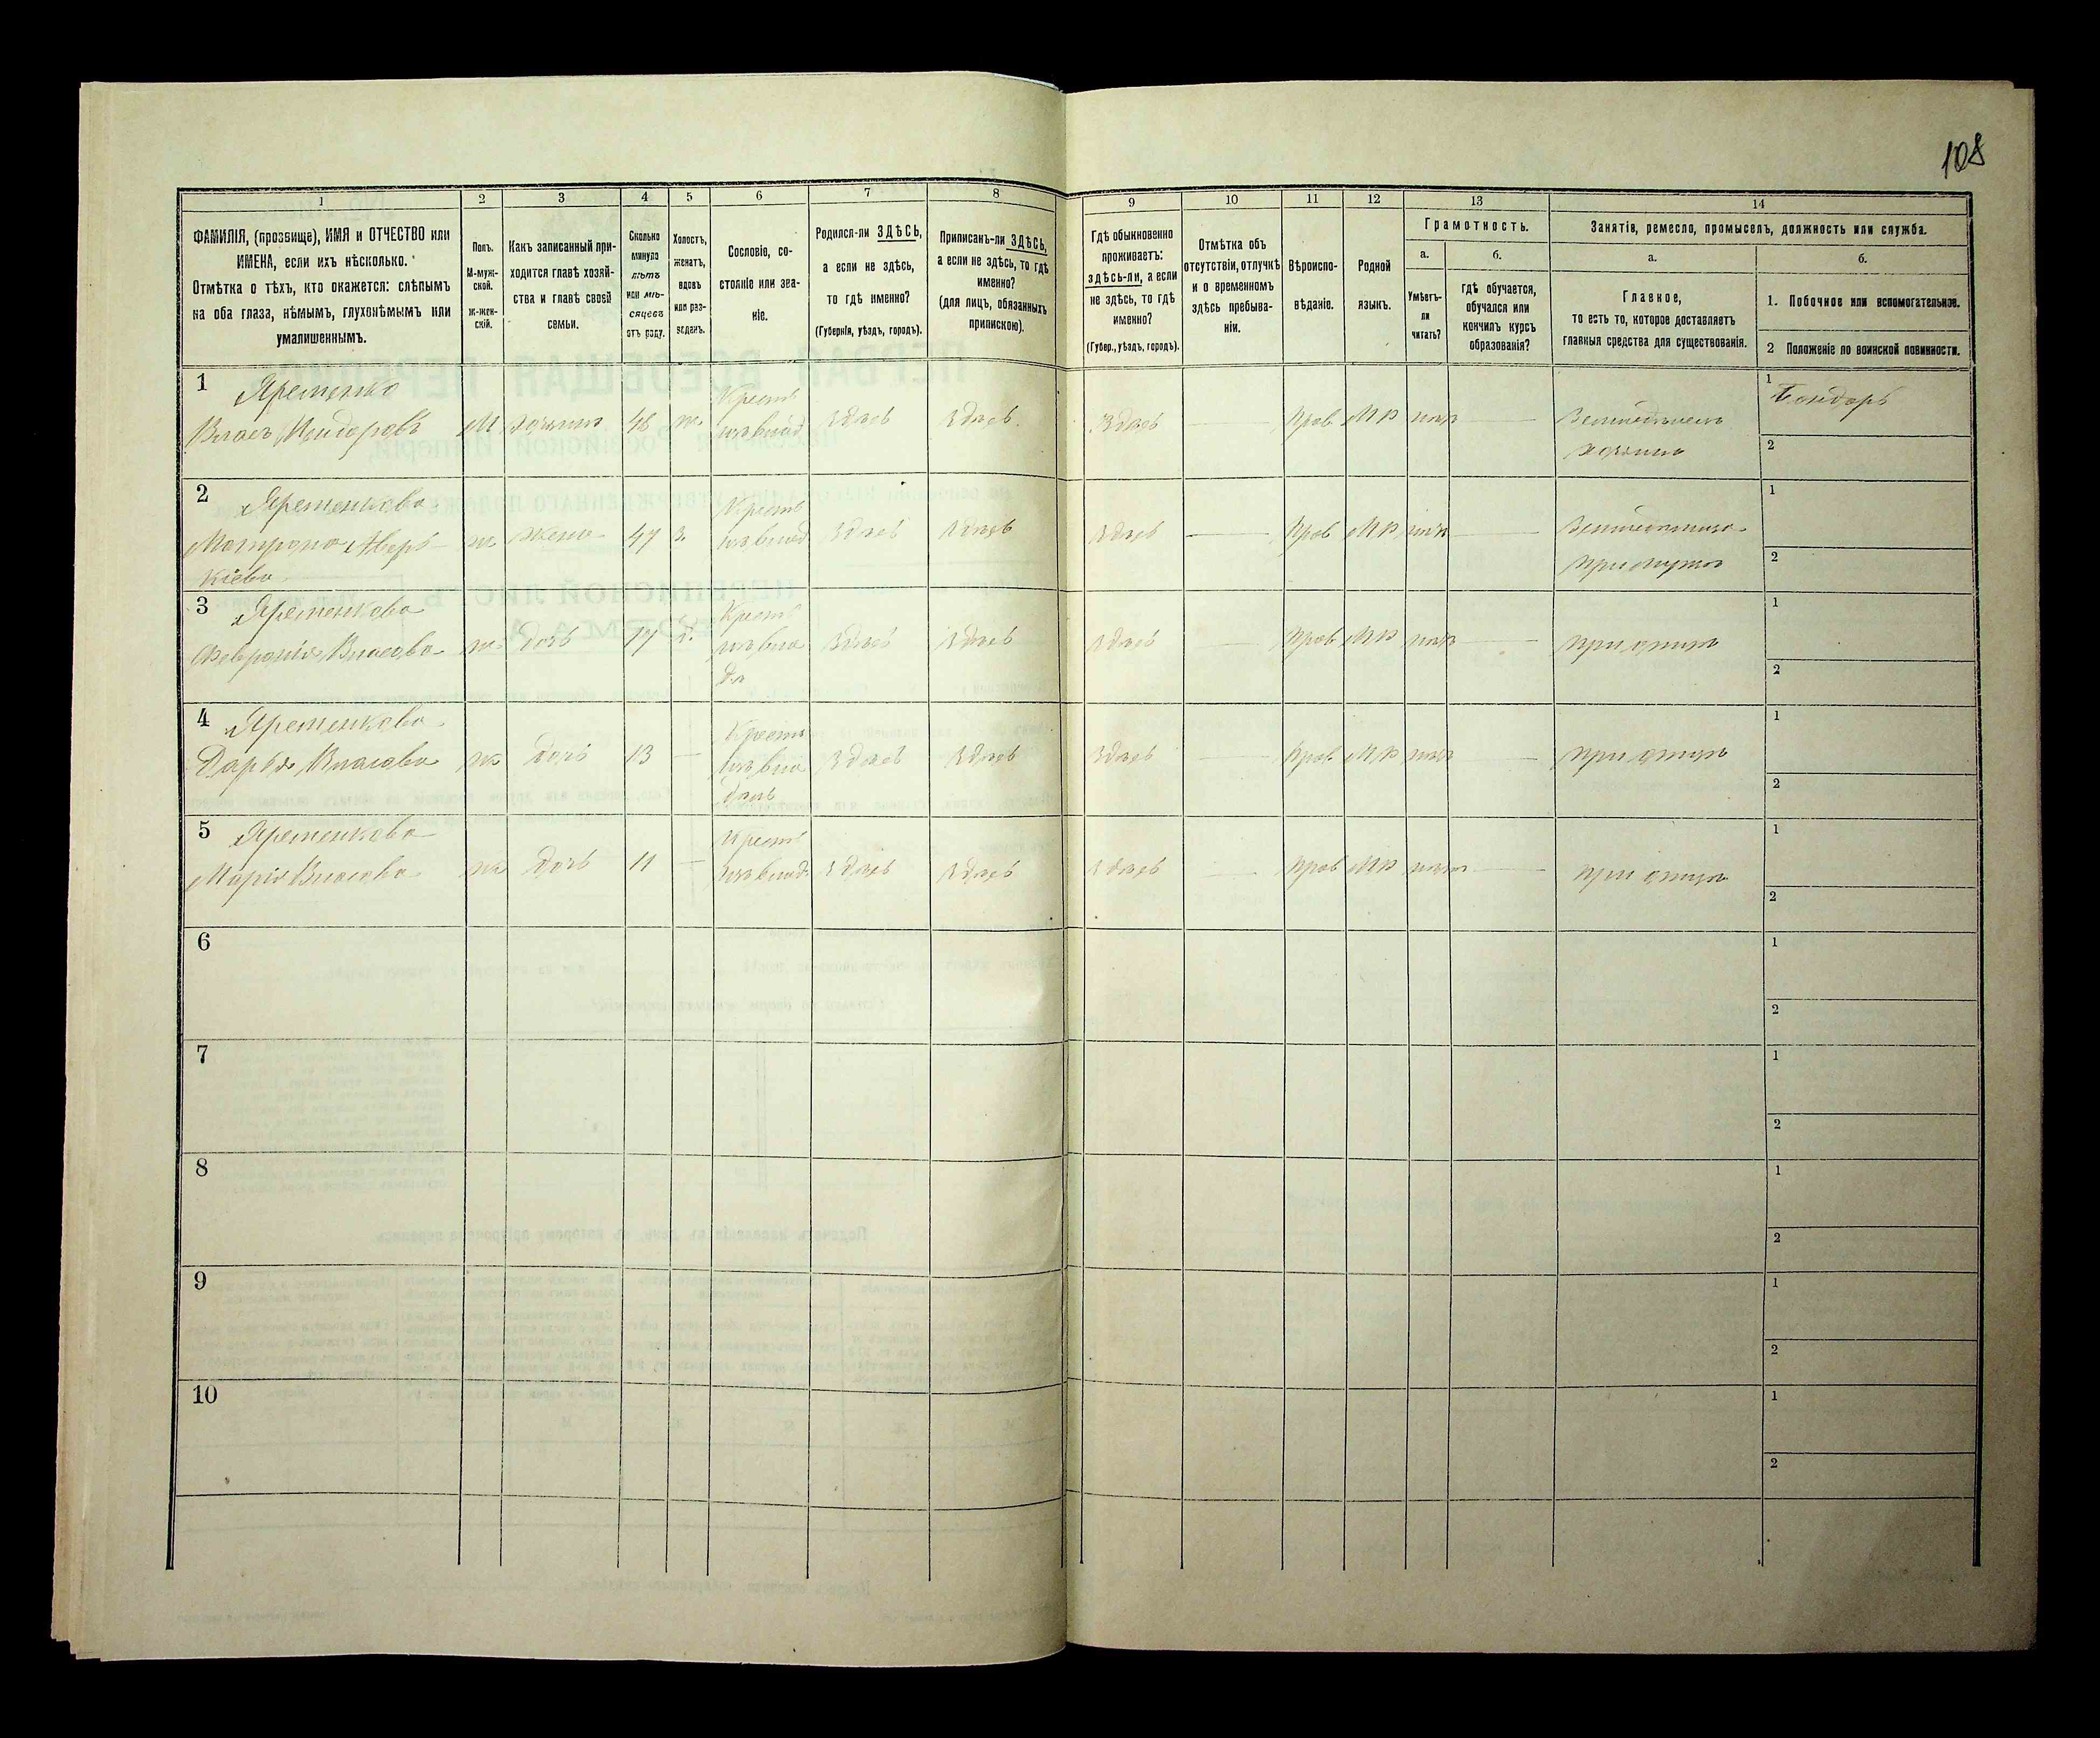 108
1
2
3
4
5
6
7
8
9
10
11
12
13
14
ФАМИЛІЯ, (прозвище), ИМЯ и ОТЧЕСТВО или
ИМЕНА, если ихъ нѣсколько.
Отмѣтка о тѣхъ, кто окажется: слѣпымъ
на оба глаза, нѣмымъ, глухонѣмымъ или
умалишеннымъ.
Полъ.
М-муж-
ской.
Ж-жен-
скій.
Какъ записанный при-
ходится главѣ хозяй-
ства и главѣ своей
семьи.
Сколько
минуло
лѣтъ
или мѣ-
сяцевъ
отъ роду.
Холостъ,
женатъ,
вдовъ
или раз-
веденъ.
Сословіе, со-
стояніе или зва-
ніе.
Родился-ли ЗДѢСЬ,
а если не здѣсь,
то гдѣ именно?
(Губернія, уѣздъ, городъ).
Приписанъ-ли ЗДѢСЬ,
а если не здѣсь, то гдѣ
именно?
(для лицъ, обязанныхъ
припискою).
Гдѣ обыкновенно
проживаетъ:
здѣсь-ли, а если
не здѣсь, то гдѣ
именно?
(Губер., уѣздъ, городъ).
Отмѣтка объ
отсутствіи, отлучкѣ
и о временномъ
здѣсь пребыва-
ніи.
Вѣроиспо-
вѣданіе.
Родной
языкъ.
Грамотность.
а.
Умѣетъ-
ли
читать?
б.
гдѣ обучается,
обучался или
кончилъ курсъ
образованія?
Занятіе, ремесло, промыселъ, должность или служба.
а.
Главное,
то есть то, которое доставляетъ
главныя средства для существованія.
б.
1. Побочное или вспомогательное.
2 Положеніе по воинской повинности.
1 Яременко
Власъ Исидоровъ М хозяинъ 48 ж. Крест. Здѣсь Здѣсь Здѣсь Прав М Р Земледѣлецъ
хозяинъ
1 Бондарь
2
2 Яременкова
Матрона Аверь-
кіева ж жена 47 З. Крест Здѣсь Здѣсь Здѣсь Прав М Р
при мужѣ
1
2
3 Яременкова
Февронія Власова ж. дочь 17 д. Крест Здѣсь Здѣсь Здѣсь Прав М Р при отцѣ
1
2
4 Яременкова
Дарья Власова ж дочь 13 — Крест Здѣсь Здѣсь Здѣсь Прав М Р при отцѣ
1
2
5 Яременкова
Марія Власова ж дочь 11 — Крест Здѣсь Здѣсь Здѣсь Прав М Р при отцѣ
1
2
6
1
2
7
1
2
8
1
2
9
1
2
10
1
2